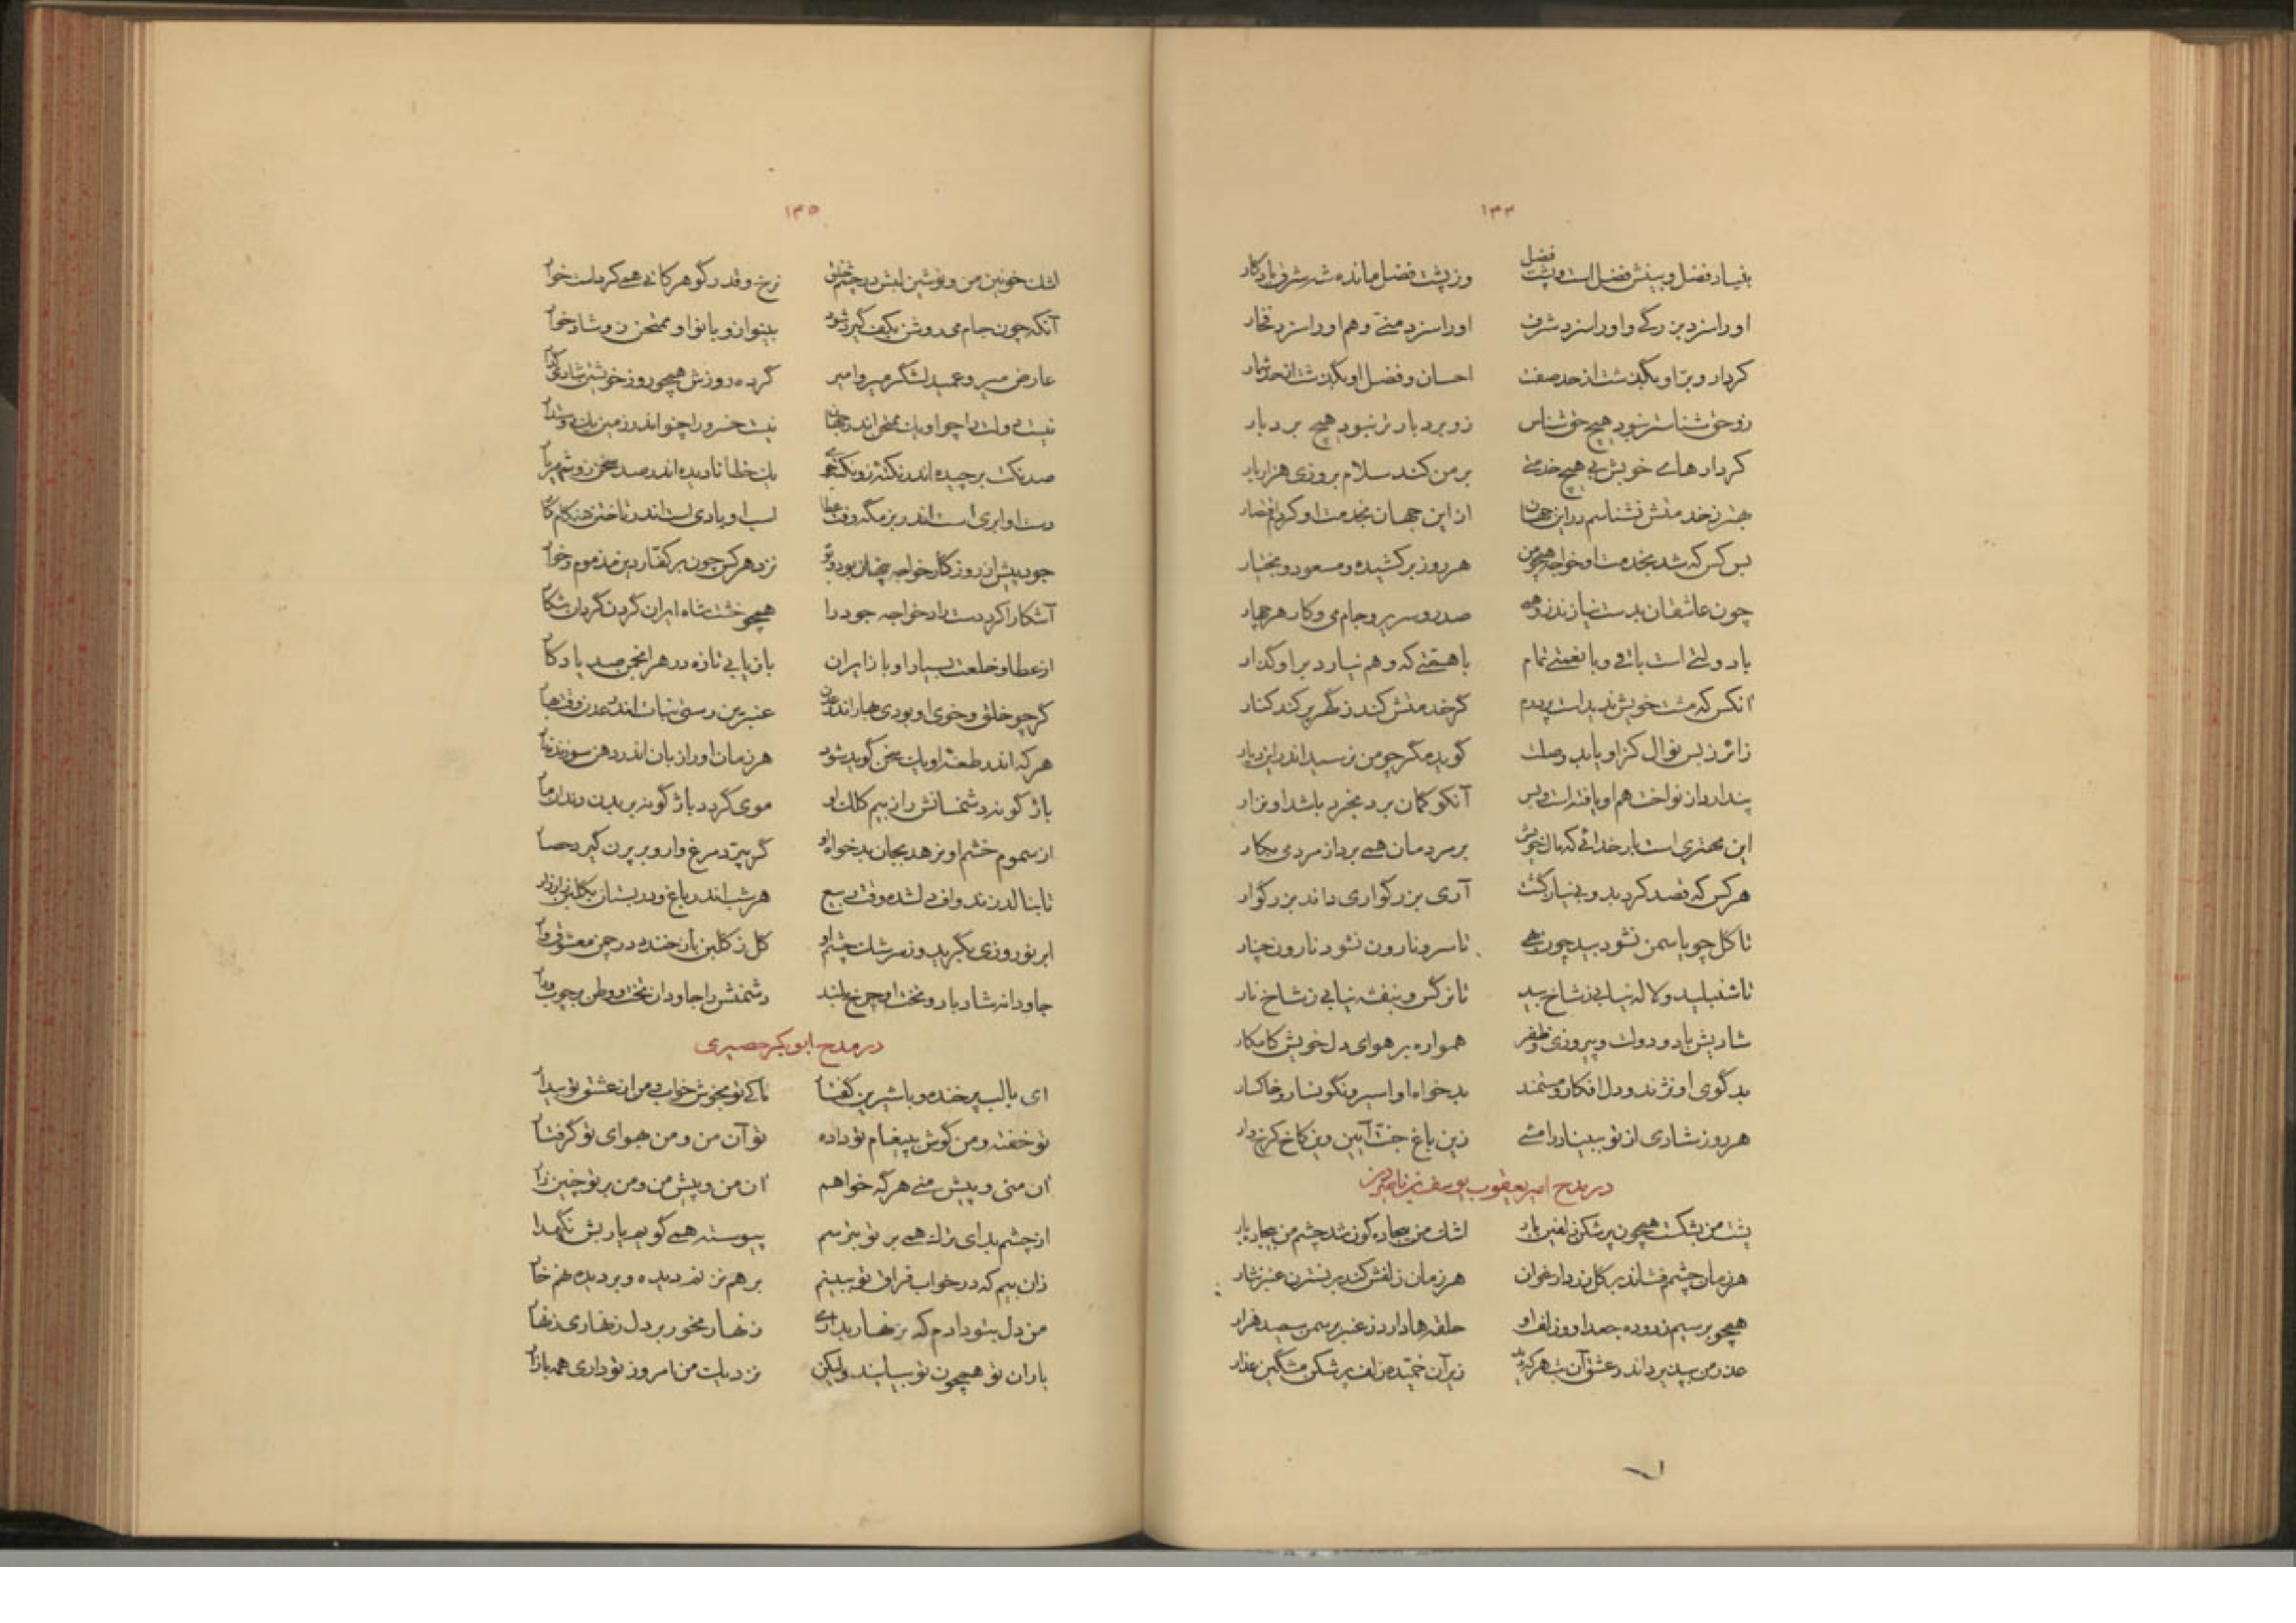 ۱۳۴
بنیاد فضل و بینش فضل است و پشت فضل وز پشت فضل مانده شرف یادگار
او را سزد بزرگی و او را سزد شرف او را سزد منی و هم او را سزد فخار
کردار و برّ او بگذشت از حد صفت احسان و فضل او بگذشت از حد شمار
زو حق شناستر نبود هیچ حق شناس زو بردبارتر نبود هیچ بردبار
کردارهای خویش بی هیچ خدمتی بر من کند سلام بروزی هزار بار
جز از خدمتش نشناسم در این جهان از این جهان بخدمت او کردم اقتصار
بس کس که شد بخدمت او خواجه همچو من هر روز برکشیده و مسعود و بختیار
چون عاشقان بدست نیازند زو همی صدر و سریر و جام می و کار هر چهار
با دولتی است باقی و با نعمتی تمام با همتی که وهم نیارد بر او گذار
آنکس که مشت خویش ندیدست پر درم گر خدمتش کند ز گهر پر کند کنار
زائر ز بس نوال کزو یابد و صلت گوید مگر چو من نرسید اندر این دیار
پندارد از نواخت هم او یافته است و بس آنکو گمان برد بخرد باشد او نزار
این مهتری است بار خدائی که مال خویش بر مردمان همی برد از مردمی بکار
هر کس که قصد کرد بدو بی نیاز گشت آری بزرگواری داند بزرگوار
تا گل چو یاسمن نشود بید چون بهی تا سرو نارون نشود نارون چنار
تا شنبلید و لاله نیابی ز شاخ بید تا نرگس و بنفشه نیابی ز شاخ نار
شادیش باد و دولت و پیروزی و ظفر همواره بر هوای دل خویش کامکار
بدگوی او نژند و دل افکار و مستمند بدخواه او اسیر و نگونسار و خاکسار
هر روز شادی از تو ببیناد رامشی زین باغ جنّت آیین وین کاخ کرخ وار
در مدح امیر یعقوب یوسف بن ناصرالدین
پشت من بشکست همچون پر شکن زلفین یار اشک من بیجاده گون شد چشم من بیجاده بار
هر زمان چشم فشاند بر گل زرد ارغوان هر زمان زلفش کند بر نسترن عنبر نثار
همچو بر سیم زدوده جعد او و زلف او حلقه‌ها دارد ز عنبر بر سمن سیصد هزار
عذر من بپذیرد اندر عشق آن بت هر که دید زیر آن خمیده زلف پر شکن مشگین عذار
۱۳۵
اشک خونین من و نوشین لبش در چشم خلق نرخ و قدر گوهر کانی همی کرده است خوار
آنکه چون جام می روشن بکف گیرد شود بینوا زو بانوا و ممتحن زو شادخوار
عارض میر و عمید لشگر میر و امیر کرده روزش همچو روز خویشتن شادی گذار
نیست دولت را چو او یک ممتحن اندر جهان نیست خسرو را چنو اندر زمین یک دوستدار
صد نکت برچیده اند نکته زو نکته جو یک خطا نادیده اندر صد سخن زو شهریار
دست او ابری است اندر بزمگه وقت عطا اسب او بادی است اندر تاختن هنگام کار
جود پیش از روزگار خواجه پنهان بود و نزد هر کس چون بر کفّار دین مذموم و خوار
آشکارا کرد دست راد خواجه جود را همچو خشت شاه ایران گردن گردان شکار
از عطا و خلعت بسیار او با زایران بازیابی تازه در هر انجمن صد یادگار
گر چو خلق و خوی او بودی بهار اندر عدن عنبرین رستی نبات اندر عدن وقت بهار
هر که اندر طعنه او یک سخن گوید شود هر زمان او را زبان اندر دهن سوزنده نار
باژگونه دشمنانش را ز بیم کلک او موی گردد باژگونه بر بدن دندان مار
از سموم خشم او نرهد بجان بدخواه او گر بپرّد مرغ وار و بر پرن گیرد حصار
تا بنالد زند واف دلشده وقت ربیع هر شب اندر باغ و در بستان بگلبن زار زار
ابر نوروزی بگرید وز سرشک چشم او گل ز گلبن باز خندد در چمن معشوق وار
جاودانه شاد باد و تخت او چرخ بلند دشمنش را جاودان تخت و وطن بر چوب دار
در مدح ابوبکر حصیری
ای با لب پر خنده و با شیرین گفتار تا کی تو بخوش خواب و من از عشق تو بیدار
تو خفته و من گوش بپیغام تو داده تو آن من و من بهوای تو گرفتار
آن منی و پیش منی هر گه خواهم آن من و پیش من و من بر تو چنین زار
از چشم بد ای ترک همی بر تو بترسم پیوسته همی گویم یاربش نگهدار
زان بیم که در خواب فراق تو ببینم بر هم نزند دیده و بر دیده نهم خار
من دل بتو دادم که بزنهار بداری زنهار مخور بر دل زنهاری زنهار
یاران تو همچون تو بسیاند ولیکن نزدیک من امروز تو داری همه بازار